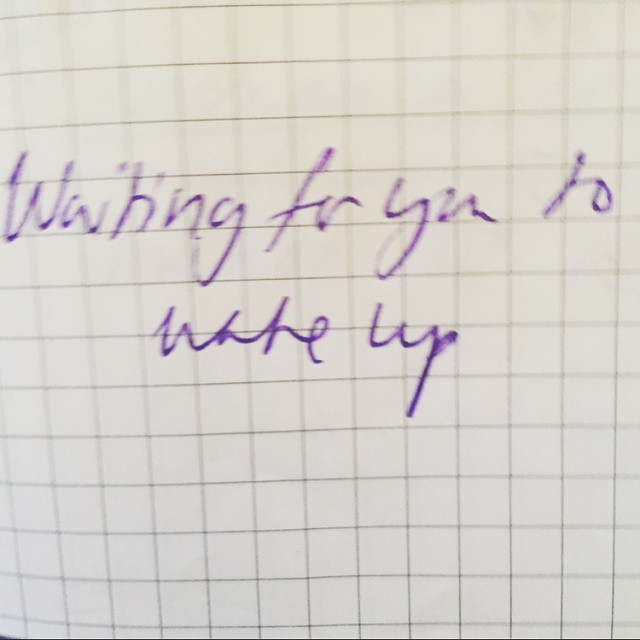 Waiting for you to
wake up